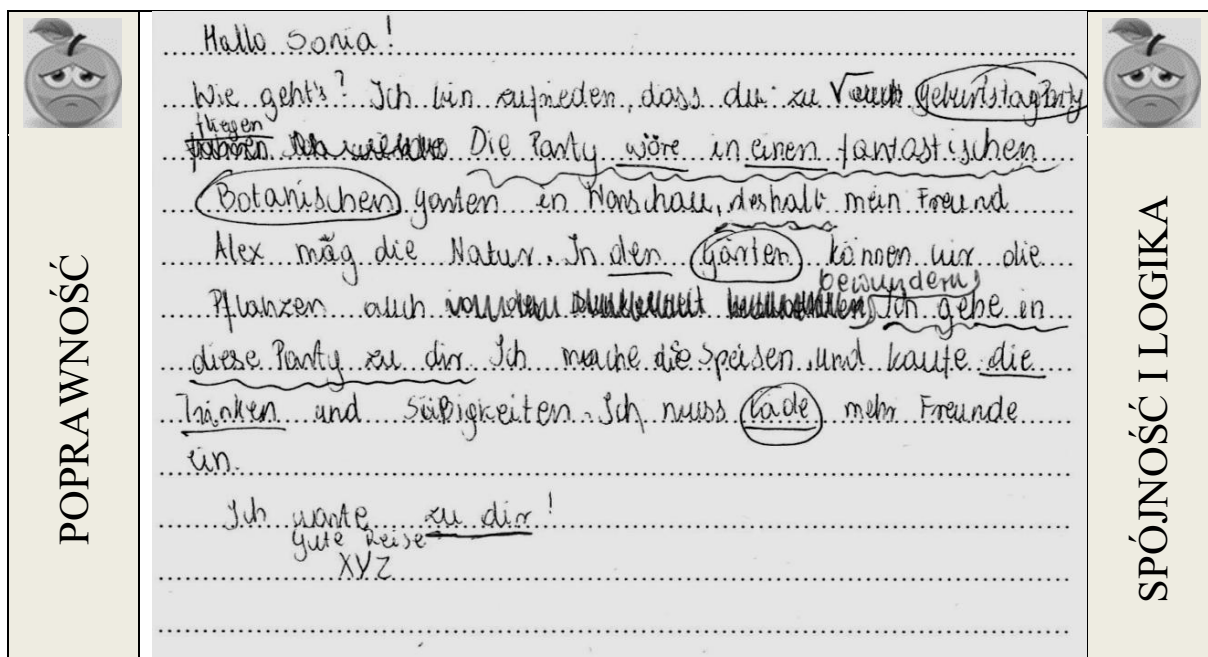 POPRAWNOŚĆ
Hallo Sonia!
Wie geht's? Ich bin zufrieden, dass du zu √ GeburtstagParty
fliegen Die Party wöre in einen fantastischen
Botanischen garten in Warschau, deshalb mein Freund
Alex mäg die Natur. In den Gärten können wir die
bewundern
Pflanzen auch Ich gehe in
diese Party zu dir. Ich mache die Speisen und kaufe die
Tränken und Süßigkeiten. Ich muss lade mehr Freunde
ein.
Ich warte zu dir!
Gute Reise
XYZ
SPÓJNOŚĆ I LOGIKA